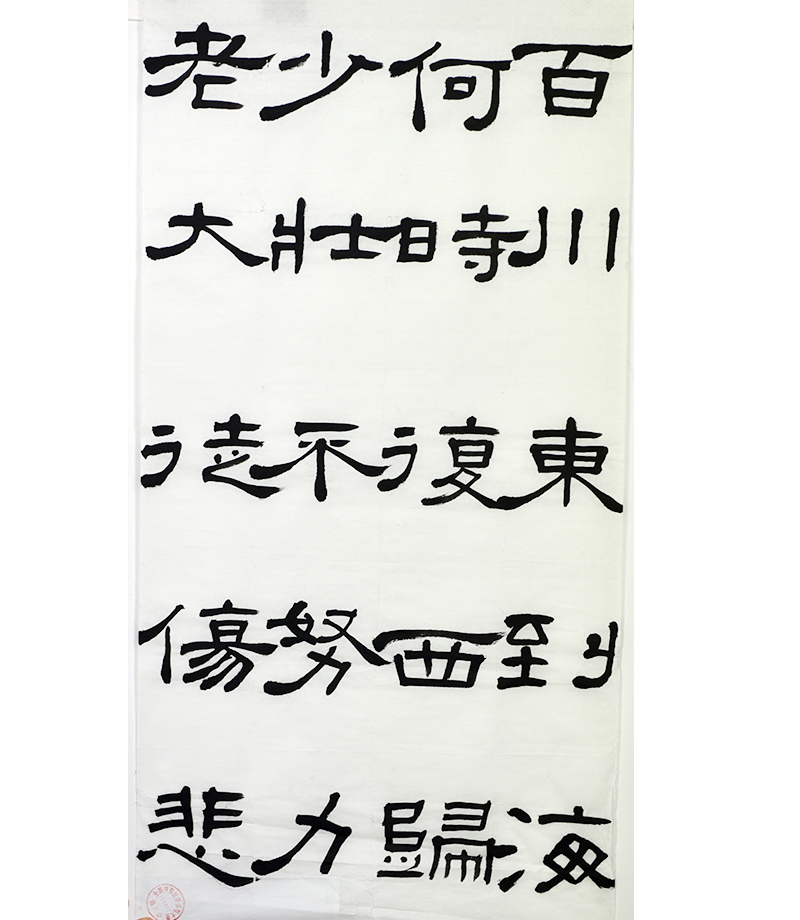 百川東到海
何時復西歸
少壯不努力
老大徒傷悲